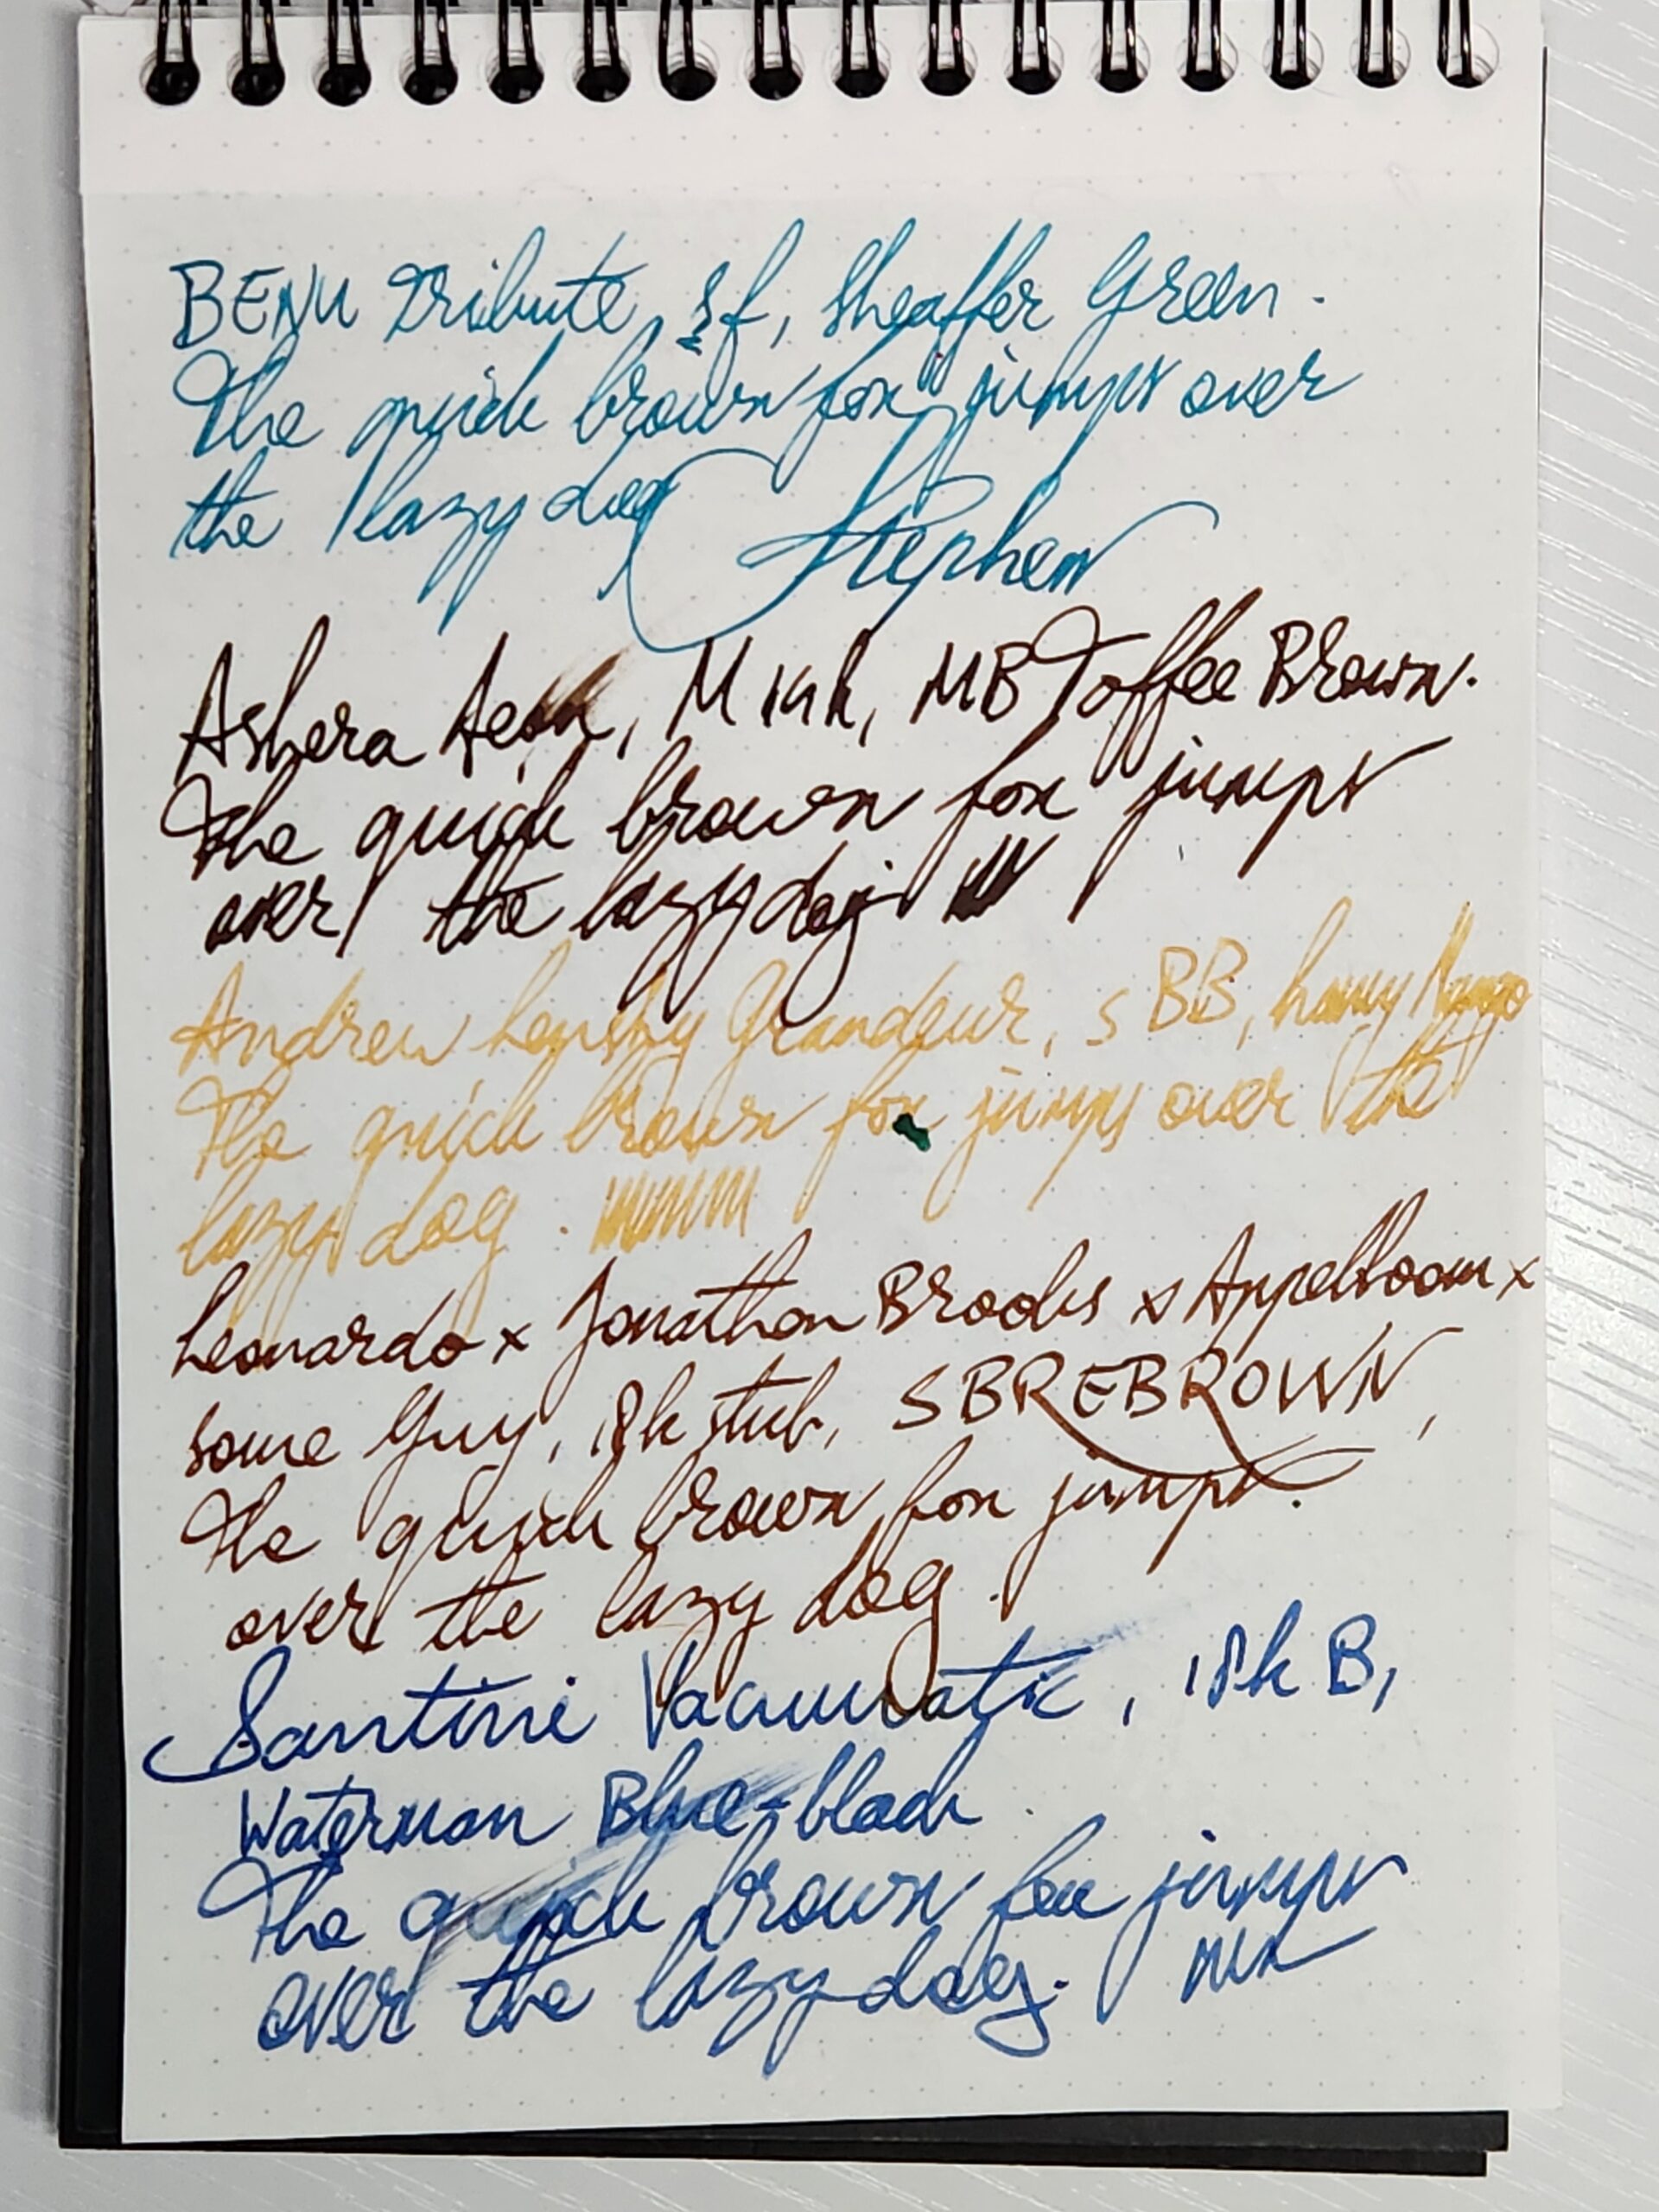 BENU Tribute, sf, Sheaffer Green.
The quick brown fox jumps over
the lazy dog Stephen
Ashera Aeon, M 14k, MB Toffee Brown.
The quick brown fox jumps
over the lazy dog
Andrew Lensky Grandeur, s BB, honey Mango
The quick brown fox jumps over the
lazy dog.
Leonardo x Jonathon Brooks x Appelboom x
some guy, 18k stub, SBREBROWN,
The quick brown fox jumps.
over the lazy dog.
Santini Vacumatic, 18k B,
Waterman Blue-black.
The quick brown fox jumps
over the lazy dog.